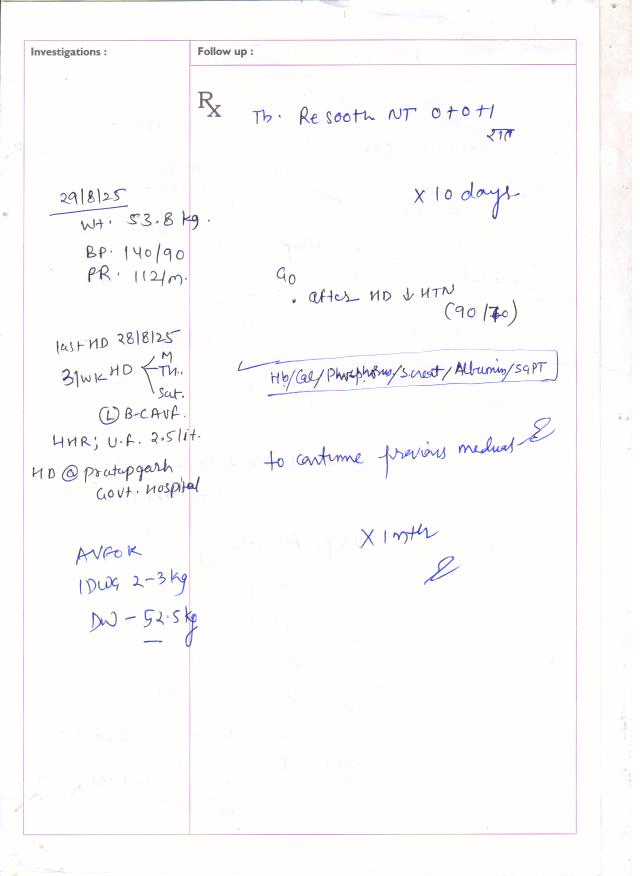 Investigations :
Follow up :
Rx
Tb. Resooth NT 0+0+1
रात
x 10 days
29/8/25
Wt. 53.8 kg.
BP. 140/90
PR. 112/m.
C/o
. after HD ↓ HTN
(90/70)
last HD 28/8/25
3/wk HD < M
Th.
Sat.
(L) B-C AVF.
4HR; U.F. 2.5 lit.
HD @ Pratapgarh
Govt. Hospital
Hb/Cal/Phosphorus/S.creat/Albumin/SGPT
to continue previous medical
x 1 mth
AVF OK
IDWG 2-3 kg
DW - 52.5 kg